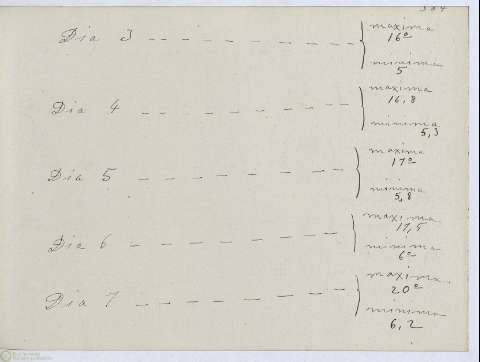 maxima
Dia 3 — — — — — — — — 16º
minima
5
maxima
Dia 4 — — — — — — — 16,8
minima
5,3
maxima
Dia 5 — — — — — — — — 17º
minima
5,8
maxima
Dia 6 — — — — — — — — 17,5
minima
6º
maxima
Dia 7 — — — — — — — — 20º
minima
6,2